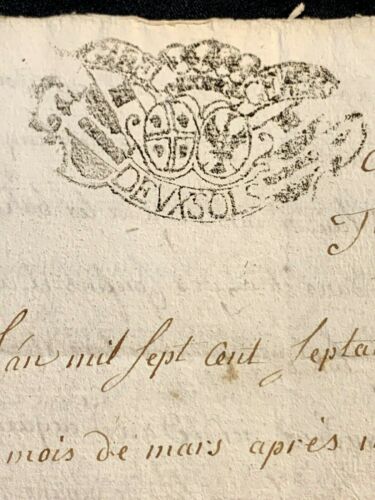 DEUX SOLS
L'an mil sept cent septa
mois de mars après m